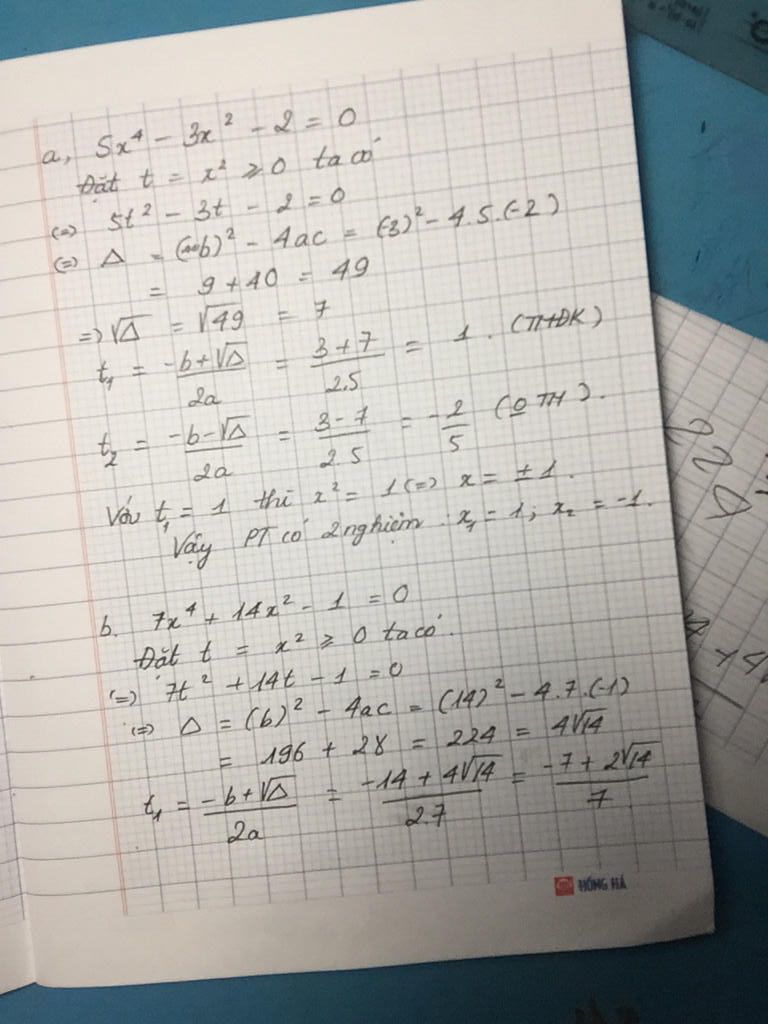 a, 5x⁴ - 3x² - 2 = 0
Đặt t = x² ≥ 0 ta có
(=) 5t² - 3t - 2 = 0
(=) Δ = (b)² - 4ac = (-3)² - 4.5.(-2)
= 9 + 40 = 49
=) √Δ = √49 = 7
t₁ = (-b+√Δ)/2a = (3+7)/2.5 = 1. (TMĐK)
t₂ = (-b-√Δ)/2a = (3-7)/2.5 = -2/5 (0 TM).
Với t₁ = 1 thì x² = 1 (=) x = ±1.
Vậy PT có 2 nghiệm: x₁ = 1; x₂ = -1.
b. 7x⁴ + 14x² - 1 = 0
Đặt t = x² ≥ 0 ta có.
(=) 7t² + 14t - 1 = 0
(=) Δ = (b)² - 4ac = (14)² - 4.7.(-1)
= 196 + 28 = 224 = 4√14
t₁ = (-b+√Δ)/2a = (-14+4√14)/2.7 = (-7+2√14)/7
HỒNG HÀ